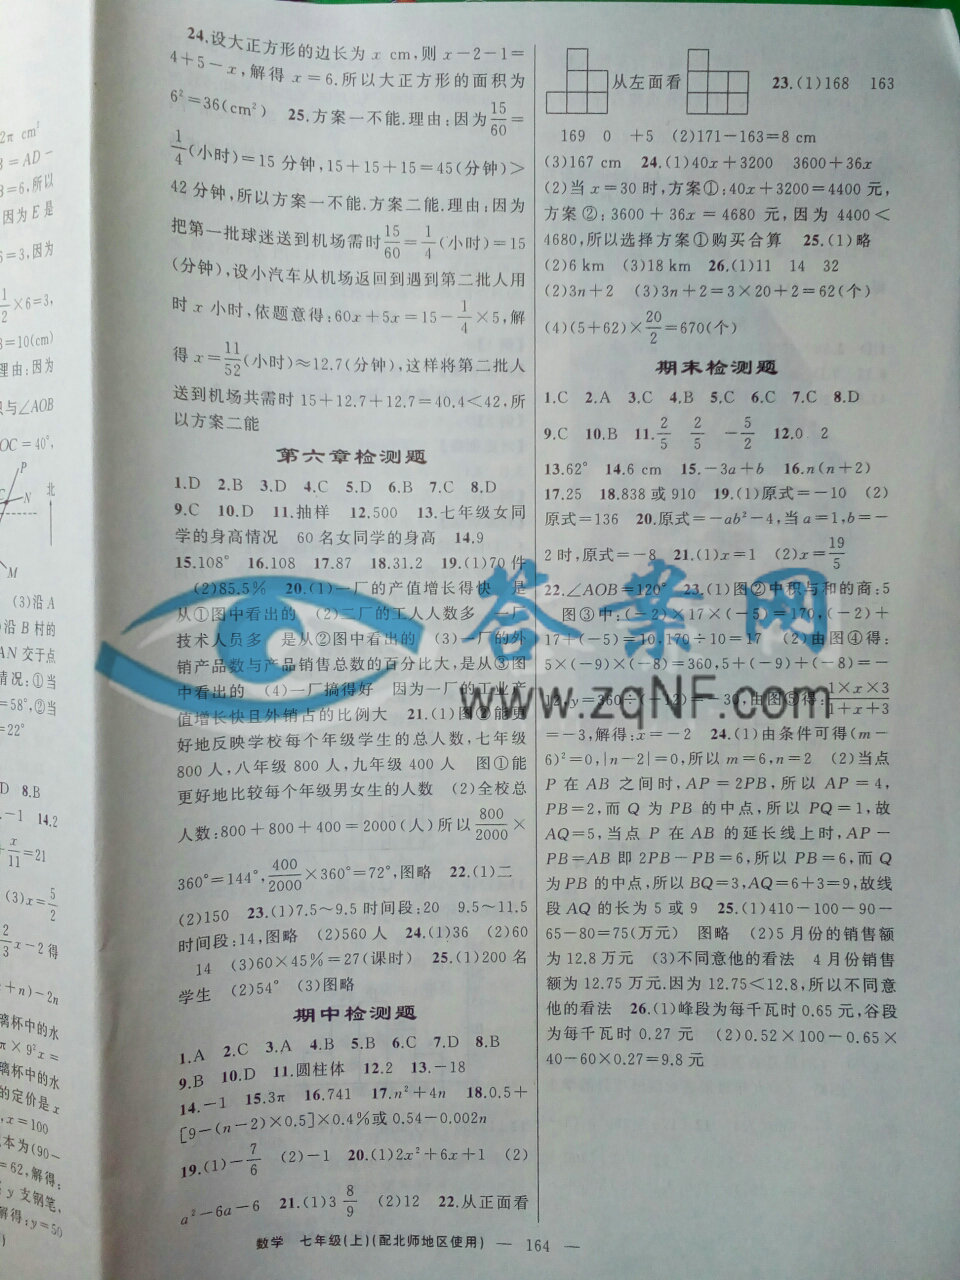 2π cm²
3=AD-
3=6,所以
因为E是
6=3,因为
1/2×6=3,
3=10(cm)
理由:因为
只与∠AOB
OC=40°,
P
N
北
M
(3)沿A
沿B村的
AN交于点
情况:①当
=58°,②当
=22°
D 8.B
-1 14.2
+x/11=21
(3)x=5/2
2/3x-2得
+n)-2n
璃杯中的水
π×9²x=
璃杯中的水
的定价是x
,x=100
本为(90-
=62,解得:
y支钢笔,
解得:y=50
24.设大正方形的边长为x cm,则x-2-1=
4+5-x,解得x=6.所以大正方形的面积为
6²=36(cm²) 25.方案一不能.理由:因为15/60=
1/4(小时)=15分钟,15+15+15=45(分钟)>
42分钟,所以方案一不能.方案二能.理由:因为
把第一批球迷送到机场需时15/60=1/4(小时)=15
(分钟),设小汽车从机场返回到遇到第二批人用
时x小时,依题意得:60x+5x=15-1/4×5,解
得x=11/52(小时)≈12.7(分钟),这样将第二批人
送到机场共需时15+12.7+12.7=40.4<42,所
以方案二能
第六章检测题
1.D 2.B 3.D 4.C 5.D 6.B 7.C 8.D
9.C 10.D 11.抽样 12.500 13.七年级女同
学的身高情况 60名女同学的身高 14.9
15.108° 16.108 17.87 18.31.2 19.(1)70件
(2)85.5% 20.(1)一厂的产值增长得快 是
从①图中看出的 (2)二厂的工人人数多 一厂
技术人员多 是从②图中看出的 (3)一厂的外
销产品数与产品销售总数的百分比大,是从③图
中看出的 (4)一厂搞得好 因为一厂的工业产
值增长快且外销占的比例大 21.(1)图②能更
好地反映学校每个年级学生的总人数,七年级
800人,八年级800人,九年级400人 图①能
更好地比较每个年级男女生的人数 (2)全校总
人数:800+800+400=2000(人)所以800/2000×
360°=144°,400/2000×360°=72°,图略 22.(1)二
(2)150 23.(1)7.5~9.5时间段:20 9.5~11.5
时间段:14,图略 (2)560人 24.(1)36 (2)60
14 (3)60×45%=27(课时) 25.(1)200名
学生 (2)54° (3)图略
期中检测题
1.A 2.C 3.A 4.B 5.B 6.C 7.D 8.B
9.B 10.D 11.圆柱体 12.2 13.-18
14.-1 15.3π 16.741 17.n²+4n 18.0.5+
[9-(n-2)×0.5]×0.4%或0.54-0.002n
19.(1)-7/6 (2)-1 20.(1)2x²+6x+1 (2)
a²-6a-6 21.(1)3 8/9 (2)12 22.从正面看
从左面看 23.(1)168 163
169 0 +5 (2)171-163=8 cm
(3)167 cm 24.(1)40x+3200 3600+36x
(2)当x=30时,方案①:40x+3200=4400元,
方案②:3600+36x=4680元,因为4400<
4680,所以选择方案①购买合算 25.(1)略
(2)6 km (3)18 km 26.(1)11 14 32
(2)3n+2 (3)3n+2=3×20+2=62(个)
(4)(5+62)×20/2=670(个)
期末检测题
1.C 2.A 3.C 4.B 5.C 6.C 7.C 8.D
9.C 10.B 11.2/5 2/5 -5/2 12.0 2
13.62° 14.6 cm 15.-3a+b 16.n(n+2)
17.25 18.838或910 19.(1)原式=-10 (2)
原式=136 20.原式=-ab²-4,当a=1,b=-
2时,原式=-8 21.(1)x=1 (2)x=19/5
22.∠AOB=120° 23.(1)图②中积与和的商:5
图③中:(-2)×17×(-5)=170,(-2)+
17+(-5)=10,170÷10=17 (2)由图④得:
5×(-9)×(-8)=360,5+(-9)+(-8)=-
12,y=360÷(-12)=-30,由图⑤得:1×x×3/1+x+3
=-3,解得:x=-2 24.(1)由条件可得(m-
6)²=0,|n-2|=0,所以m=6,n=2 (2)当点
P在AB之间时,AP=2PB,所以AP=4,
PB=2,而Q为PB的中点,所以PQ=1,故
AQ=5,当点P在AB的延长线上时,AP-
PB=AB即2PB-PB=6,所以PB=6,而Q
为PB的中点,所以BQ=3,AQ=6+3=9,故线
段AQ的长为5或9 25.(1)410-100-90-
65-80=75(万元) 图略 (2)5月份的销售额
为12.8万元 (3)不同意他的看法 4月份销售
额为12.75万元.因为12.75<12.8,所以不同意
他的看法 26.(1)峰段为每千瓦时0.65元,谷段
为每千瓦时0.27元 (2)0.52×100-0.65×
40-60×0.27=9.8元
答案网
www.zqNF.com
数学 七年级(上)(配北师地区使用) — 164 —